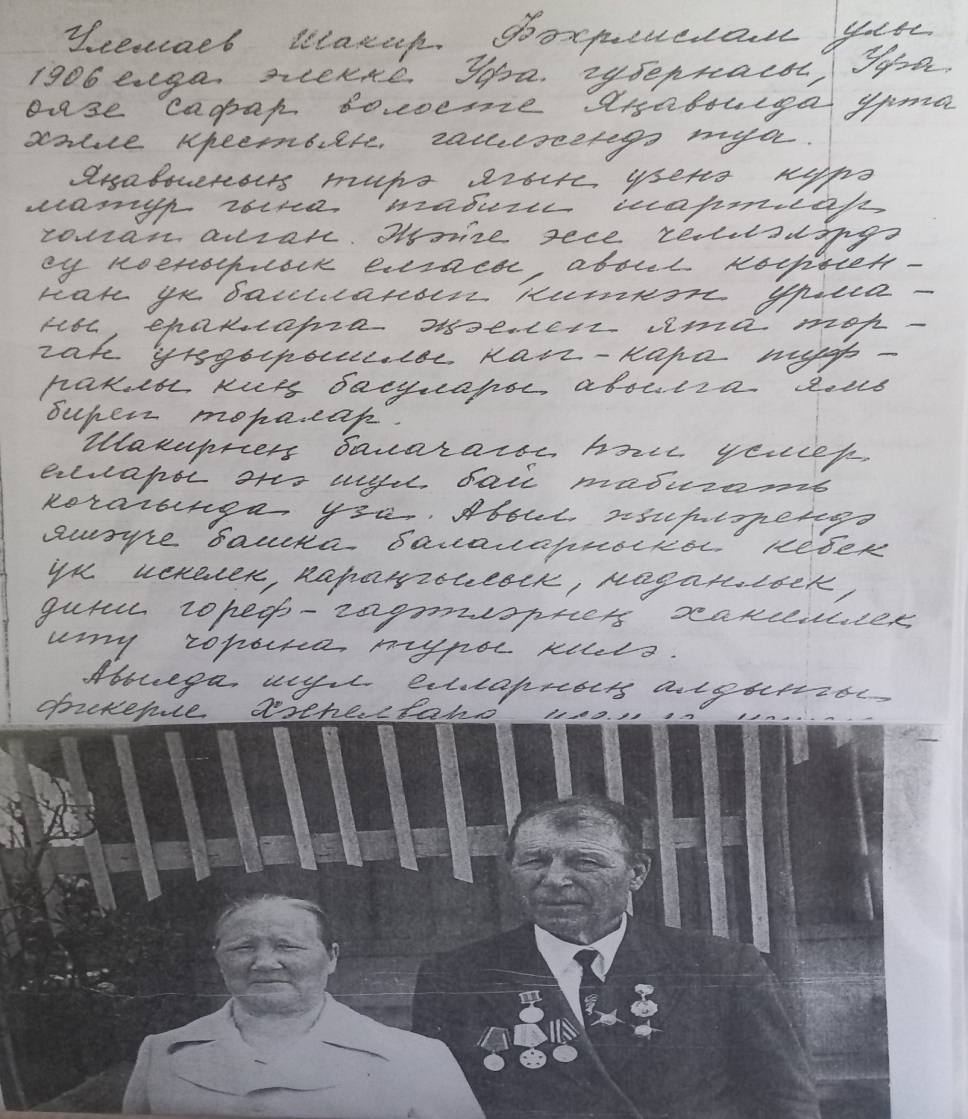 Улемаев Шакир Фәхрлислам улы
1906 елда элекке Уфа губернасы, Уфа
оязе сафар волосте Яңавылда урта
хәлле крестьян гаиләсендә туа.
Яңавылның тирә ягын үзенә күрә
матур гына табиги шартлар
чолган алган. Җәйге эссе челләләрдә
су коенырлык елгасы, авыл кырыен-
нан ук башланып киткән урма-
ны, еракларга җәелеп ята тор-
ган уңдырышлы кап-кара туф-
раклы киң басулары авылга ямь
биреп торалар.
Шакирнең балачагы һәм үсмер
еллары энә шул бай табигать
кочагында уза. Авыл җирләрендә
яшәүче башка балаларныкы кебек
ук искелек, караңгылык, наданлык,
дини гореф-гадәтләрнең хакимлек
итү чорына туры килә.
Авылда шул елларның алдынгы
фикерле